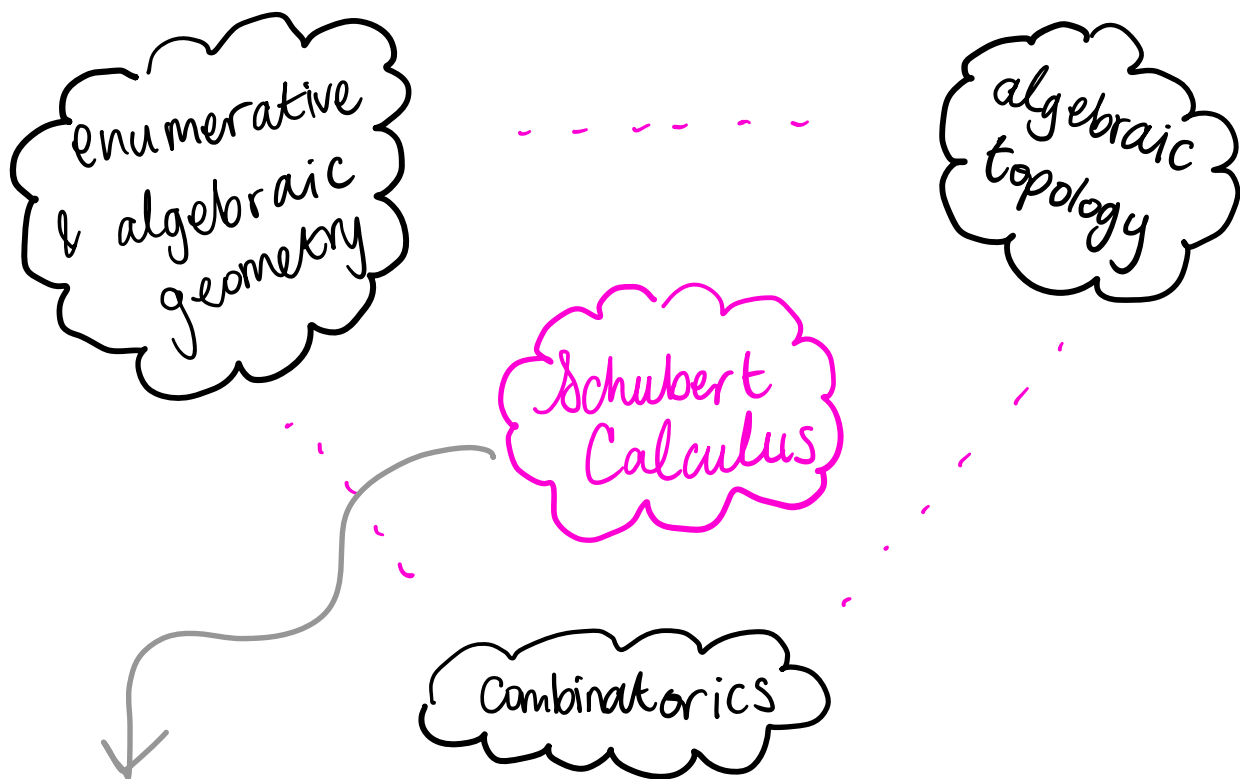 enumerative
& algebraic
geometry
algebraic
topology
Schubert
Calculus
Combinatorics